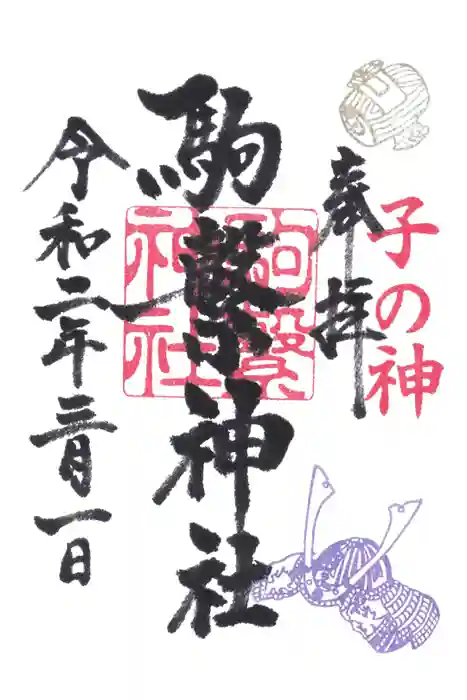 奉拝
子の神
駒繋神社
駒繋神社
令和二年三月一日